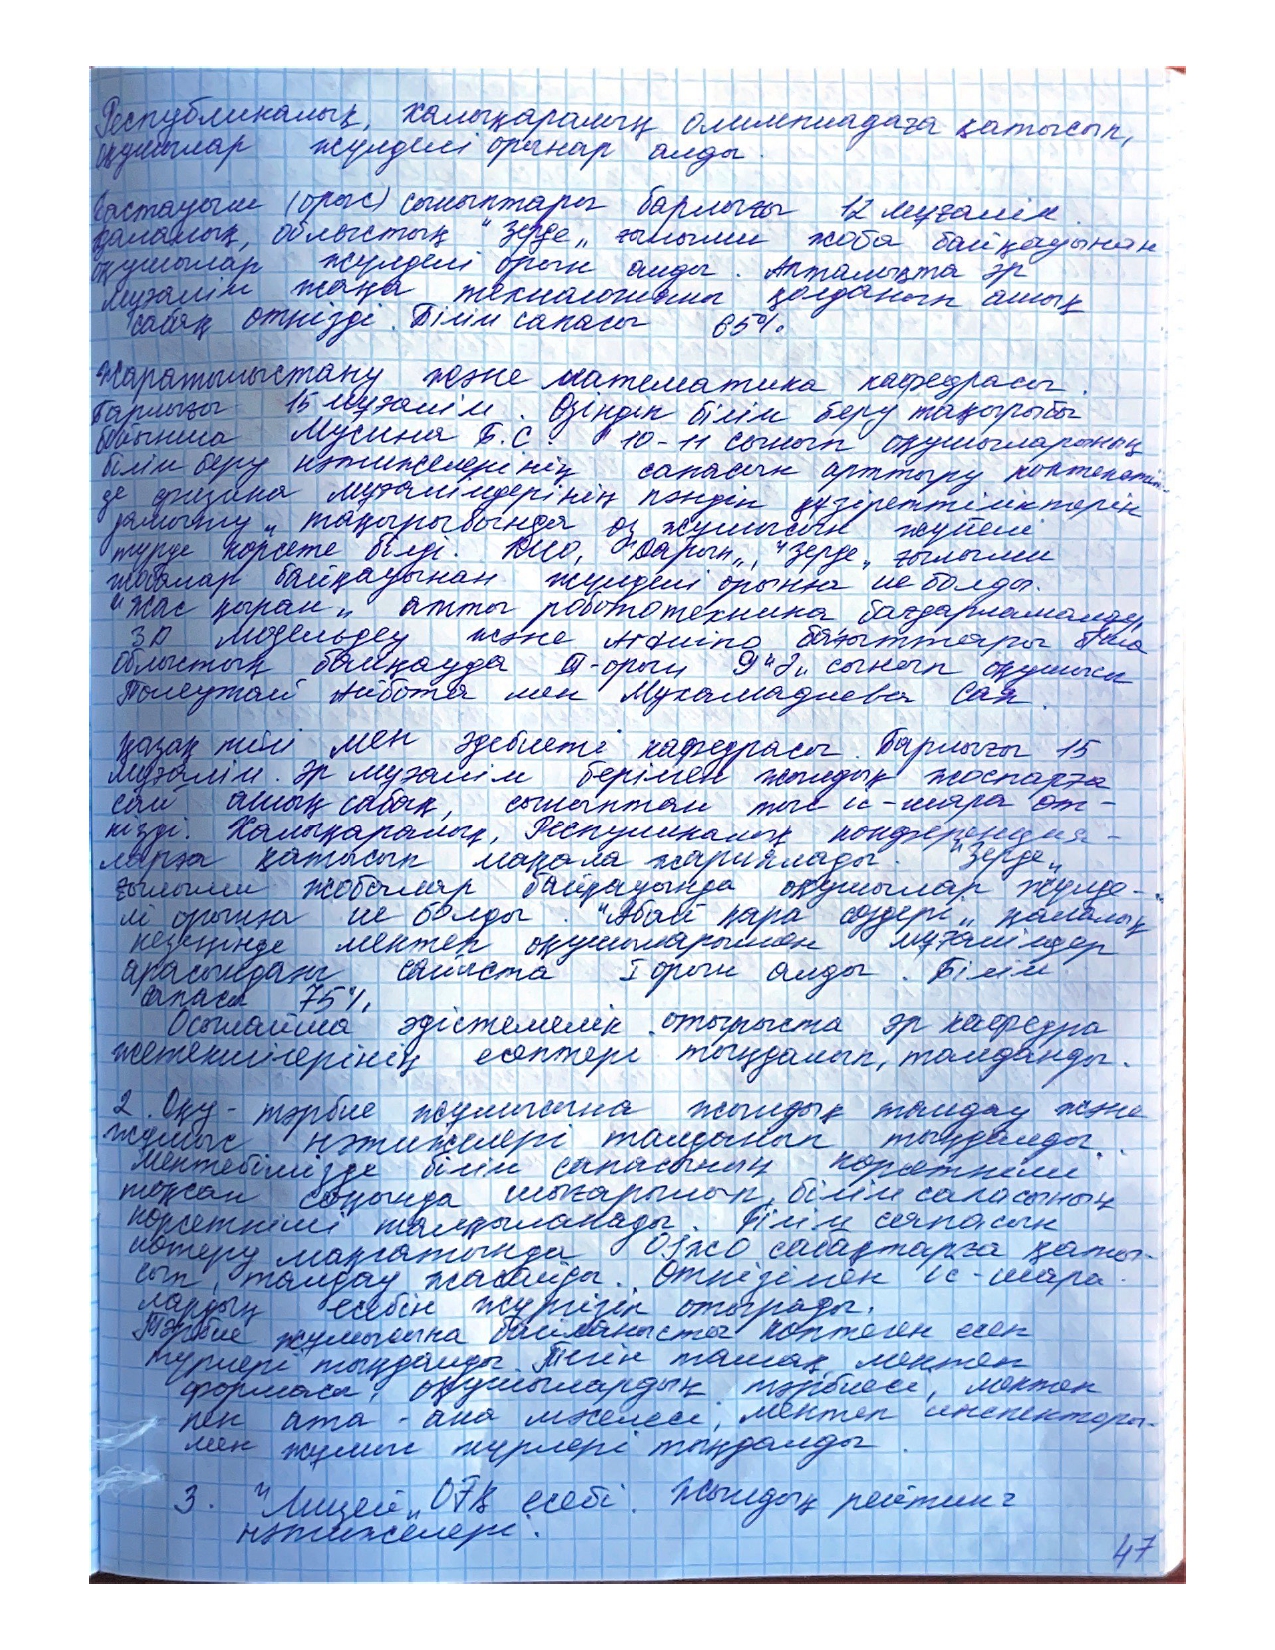 Республикалық, халықаралық олимпиадаға қатысып,
оқушылар жүлделі орынар алды.
Бастауыш (орыс) сыныптары барлығы 12 мұғалім.
қалалық, облыстық "Зерде" ғылыми жоба байқауынан
оқушылар жүлделі орын алды. Апталықта әр
мұғалім жаңа технологияны қолданып ашық
сабақ өткізді. Білім сапасы 65%.
Жаратылыстану және математика кафедрасы.
Барлығы 15 мұғалім. Өзіндік білім беру тақырыбы
бойынша Мусина Б.С. "10-11 сынып оқушыларының
білім беру нәтижелерінің сапасын арттыру контексін-
де физика мұғалімдерінің пәндік құзыреттіліктерін
дамыту" тақырыбында өз жұмысын жүйелі
түрде көрсете білді. КИО, "Дарын", "Зерде" ғылыми
жобалар байқауынан жүлделі орынға ие болды.
"Жас қыран" атты робототехника бағдарламалау,
3D модельдеу және Arduino бағыттары б-ша
облыстық байқауда III-орын 9"Ә" сынып оқушысы
Толеутай Айбота мен Мухамадиева Сая.
Қазақ тілі мен әдебиеті кафедрасы. Барлығы 15
мұғалім. Әр мұғалім берілген жылдық жоспарға
сай ашық сабақ, сыныптан тыс іс-шара өт-
кізді. Халықаралық, Республикалық конференция-
ларға қатысып мақала жариялады. "Зерде"
ғылыми жобалар байқауында оқушылар жүлде-
лі орынға ие болды. "Абай қара сөздері" қалалық
кезеңінде мектеп оқушыларымен мұғалімдер
арасындағы сайыста I орын алды. Білім
сапасы 75%.
Осылайша әдістемелік отырыста әр кафедра
жетекшілерінің есептері тыңдалып, талданды.
2. Оқу-тәрбие жұмысына жылдық талдау және
жұмыс нәтижелері талданып тыңдалды.
Мектебімізде білім сапасының көрсеткіші
тоқсан соңында шығарылып, білім сапасының
көрсеткіші талқыланады. Білім сапасын
көтеру мақсатында ОІЖО сабақтарға қаты-
сып, талдау жасайды. Өткізілген іс-шара
лардың есебін жүргізіп отырады.
Тәрбие жұмысына байланысты көптеген есеп
түрлері тыңдалды. Тегін тамақ, мектеп
формасы, оқушылардың тәрбиесі, мектеп
пен ата-ана мәселесі, мектеп инспекторы-
мен жұмыс түрлері тыңдалды.
3. "Лицей" ОӘК есебі. Жылдық рейтинг
нәтижелері.
47